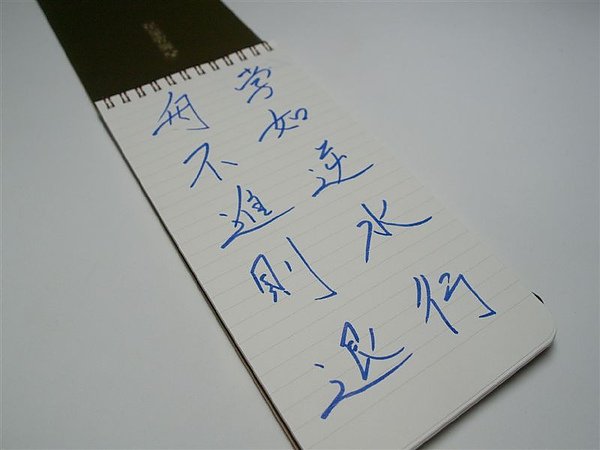 学如逆水行
舟不進則退